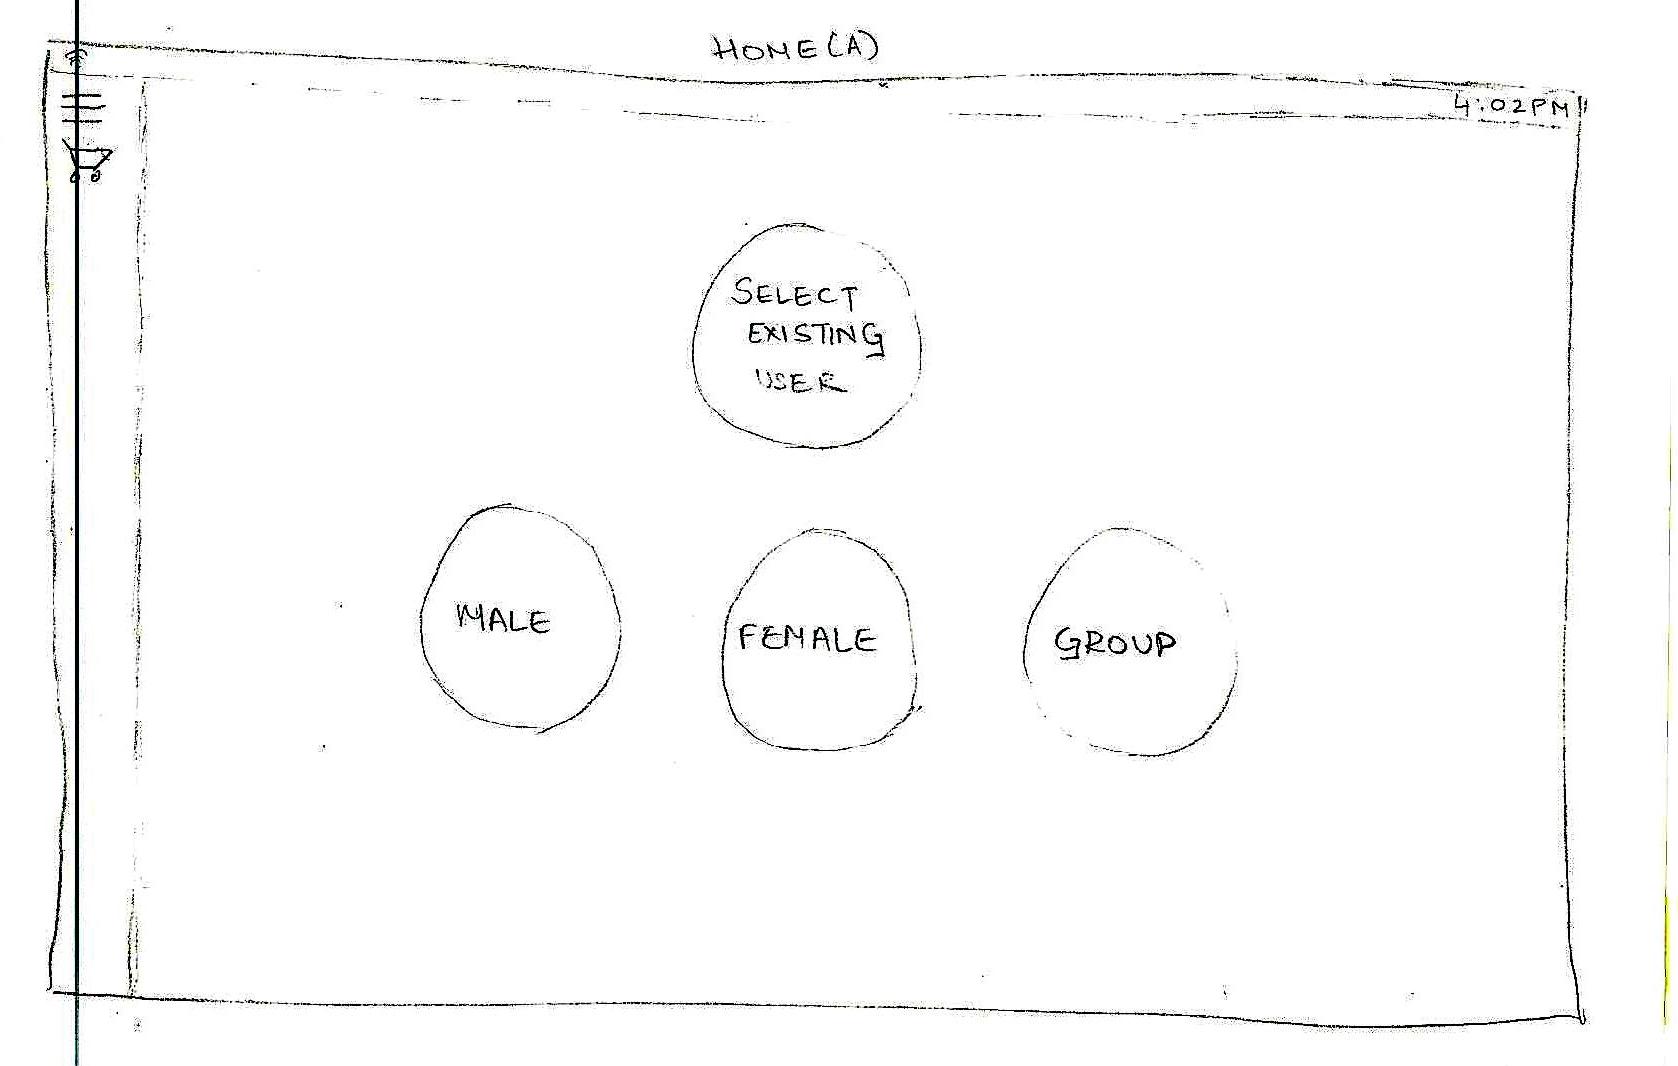 HOME(A)
4:02PM
SELECT
EXISTING
USER
MALE
FEMALE
GROUP